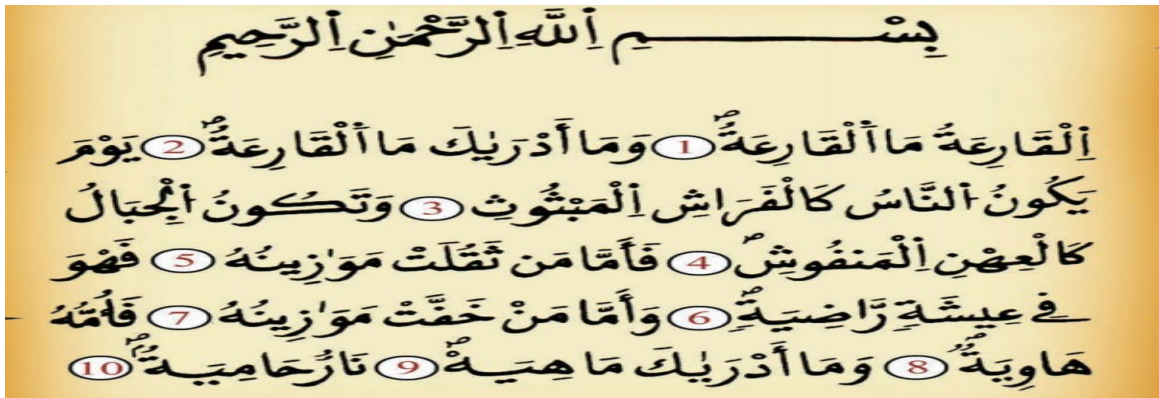 بِسْمِ اِ۬للَّهِ اِ۬لرَّحْمَٰنِ اِ۬لرَّحِيمِ
اِ۬لْقَارِعَةُ مَا اَ۬لْقَارِعَةُۖ 1 وَمَا أَدْرَيٰكَ مَا اَ۬لْقَارِعَةُۖ 2 يَوْمَ
يَكُونُ اُ۬لنَّاسُ كَالْفَرَاشِ اِ۬لْمَبْثُوثِ 3 وَتَكُونُ اُ۬لْجِبَالُ
كَالْعِهْنِ اِ۬لْمَنفُوشِۖ 4 فَأَمَّا مَن ثَقُلَتْ مَوَٰزِينُهُ 5 فَهْوَ
فِے عِيشَةٖ رَّاضِيَةٖۖ 6 وَأَمَّا مَنْ خَفَّتْ مَوَٰزِينُهُ 7 فَأُمُّهُ
هَاوِيَةٞۖ 8 وَمَا أَدْرَيٰكَ مَا هِيَهْۖ 9 نَارٌ حَامِيَةُۢۖ 10